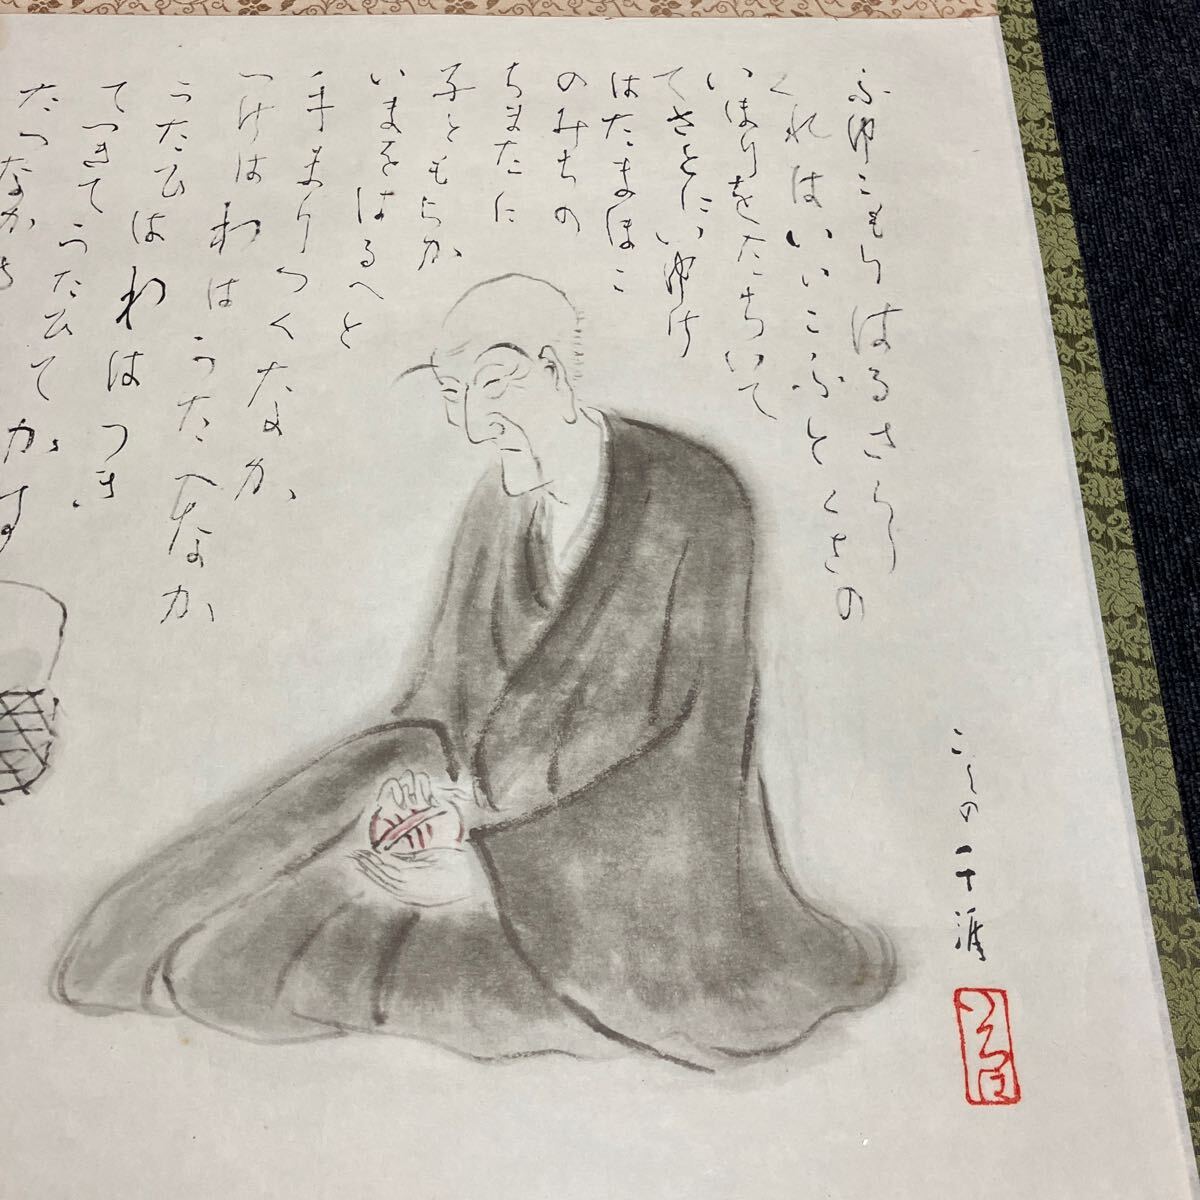 ふゆこもりはるさり
くれはいいこふとくさの
いほりをたちいて
てさとにいゆけ
はたまほこ
のみちの
ちまたに
子ともらか
いまをはるへと
手まりつくなか
つけはわはうたへなか
うたひはわはつき
てつきてうたひてかす
たつなかき
こしの千涯